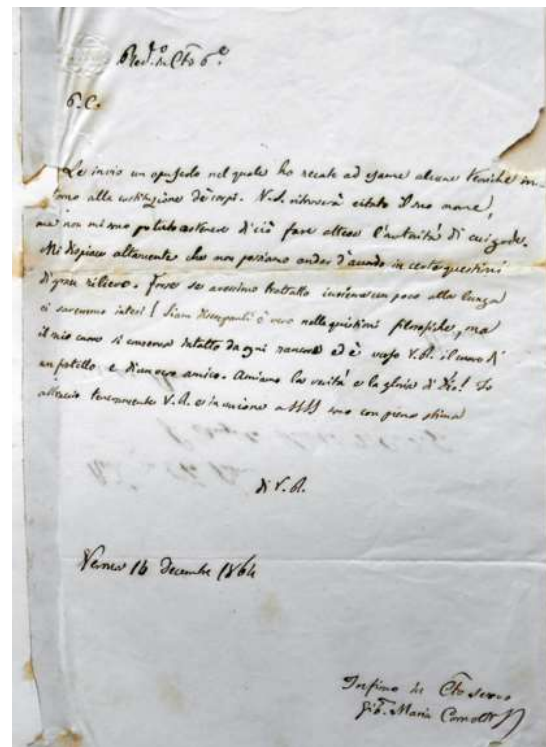 Rev.do in Cto P.e
P.C.
Le invio un opuscolo nel quale ho recate ad esame alcune teoriche in-
torno alla costituzione de' corpi. V.R. ritroverà citato il suo nome,
me non mi sono potuto astenere di ciò fare attesa l'autorità di cui gode.
Mi dispiace altamente che non possiamo andar d'accordo in certe questioni
di gran rilievo. Forse se avessimo trattato insieme un poco alla lunga
ci saremmo intesi! Siam discrepanti è vero nelle quistioni filosofiche, ma
il mio cuore si conserva intatto da ogni rancore ed è verso V.R. il cuore di
un fratello e di un vero amico. Amiamo la verità e la gloria di Dio! Io
abbraccio teneramente V.R. e in unione a SSSS sono con piena stima
di V.R.
14 Decembre 1864
Infimo in Cto servo
Gio. Maria Cornoldi